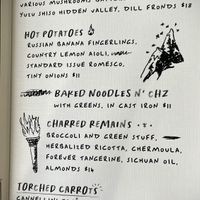 VARIOUS MUSHROOMS
YUZU SHISO HIDDEN VALLEY, DILL FRONDS $18
HOT POTATOES
RUSSIAN BANANA FINGERLINGS,
COUNTRY LEMON AIOLI,
STANDARD ISSUE ROMESCO,
TINY ONIONS $11
BAKED NOODLES N' CHZ
WITH GREENS, IN CAST IRON $11
CHARRED REMAINS · V ·
BROCCOLI AND GREEN STUFF,
HERBALIZED RICOTTA, CHERMOULA,
FOREVER TANGERINE, SICHUAN OIL,
ALMONDS $16
TORCHED CARROTS